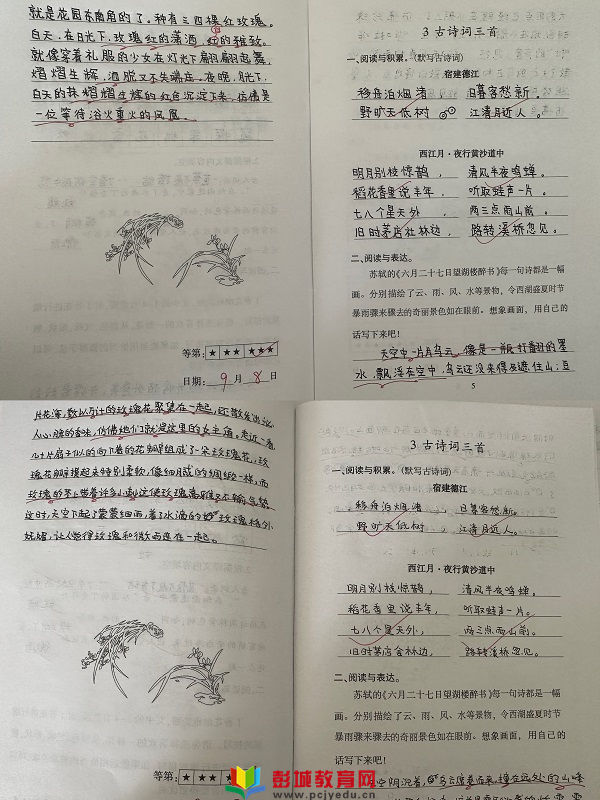 就是花园东南角的了。种有三四棵红玫瑰。
白天，在日光下，玫瑰红的潇洒，红的雅致。
就像穿着礼服的少女在灯光下翩翩起舞，
熠熠生辉，洒脱又不失端庄。夜晚，月光下，
白天的抹熠熠生辉的红色沉淀下来，仿佛是
一位等待浴火重火的凤凰。
等第：★ ★★ ★★★
日期：9月8日
3 古诗词三首
一、阅读与积累。（默写古诗词）
宿建德江
移舟泊烟渚，日暮客愁新。
野旷天低树，江清月近人。
西江月·夜行黄沙道中
明月别枝惊鹊，清风半夜鸣蝉。
稻花香里说丰年，听取蛙声一片。
七八个星天外，两三点雨山前。
旧时茅店社林边，路转溪桥忽见。
二、阅读与表达。
苏轼的《六月二十七日望湖楼醉书》每一句诗都是一幅
画。分别描绘了云、雨、风、水等景物，令西湖盛夏时节
暴雨骤来骤去的奇丽景色如在眼前。想象画面，用自己的
话写下来吧！
天空中一片片乌云，像是一瓶打翻的墨
水，飘浮在空中，乌云还没来得及遮住山；豆
5
片花海，数以万计的玫瑰花聚集在一起，还散发出沁
人心脾的香味，仿佛她们就是这里的女主角。走近一看，
几十片扇子似的向下卷的花瓣组成了一朵玫瑰花，玫
瑰花瓣摸起来特别柔软，像细月或的绸缎一样，而
玫瑰的茎上带着许多小刺，这使玫瑰美丽
这时，天空下起了蒙蒙细雨，着了水滴的玫瑰格外
妩媚，让人觉得玫瑰和微雨连在一起。
等第：★ ★★
3 古诗词三首
一、阅读与积累。（默写古诗词）
宿建德江
移舟泊烟渚，日暮客愁新。
野旷天低树，江清月近人。
西江月·夜行黄沙道中
明月别枝惊鹊，清风半夜鸣蝉。
稻花香里说丰年，听取蛙声一片。
七八个星天外，两三点雨山前。
旧时茅店舍林边，路转溪桥忽见。
二、阅读与表达。
苏轼的《六月二十七日望湖楼醉书》每一句诗都是一幅
画。分别描绘了云、雨、风、水等景物，令西湖盛夏时节
暴雨骤来骤去的奇丽景色如在眼前。想象画面，用自己的
话写下来吧！
天空阴沉着，乌云席卷而来，撞在远处的山峰
彭城教育网
www.pcjyedu.cn